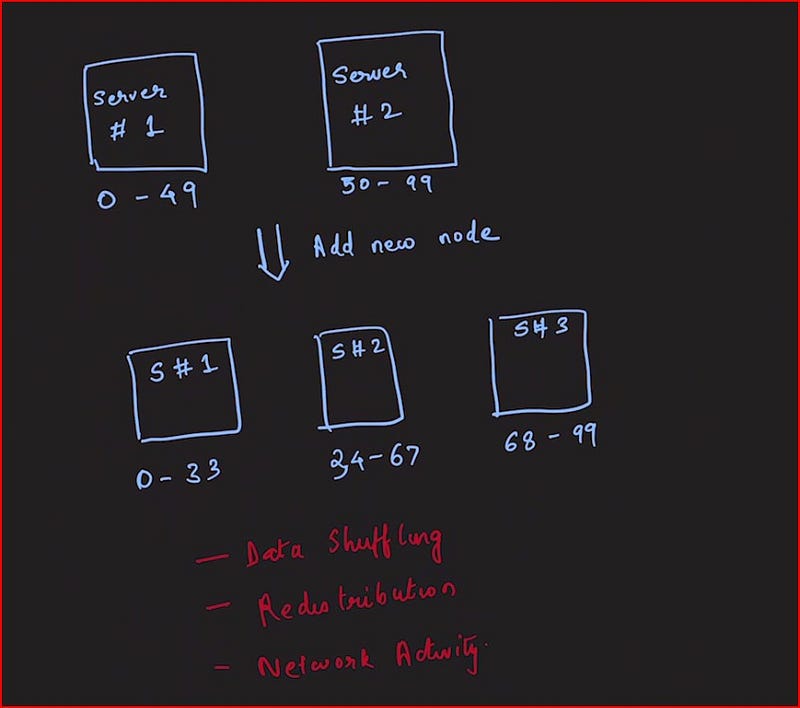 Server
# 1
Server
# 2
0 - 49
50 - 99
Add new node
S # 1
S # 2
S # 3
0 - 33
34 - 67
68 - 99
— Data Shuffling
— Redistribution
- Network Activity.